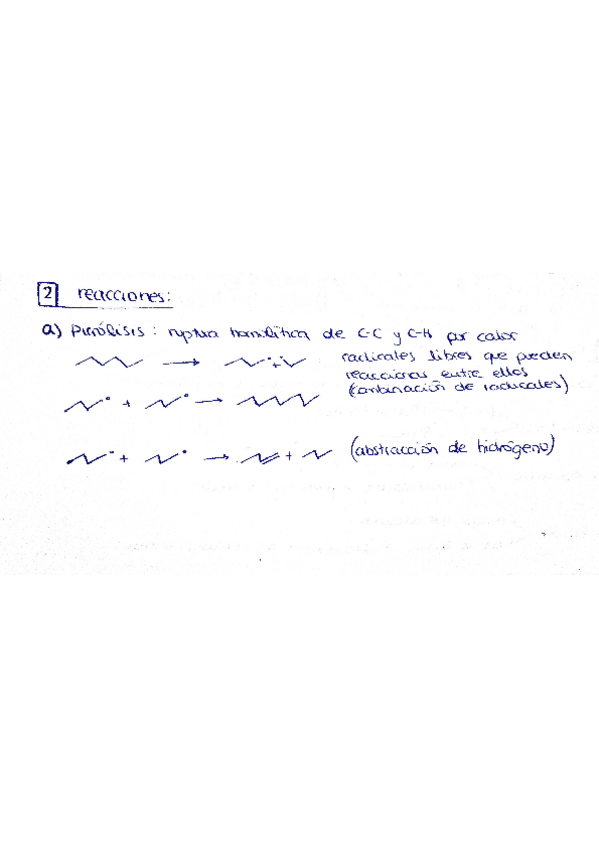 2 reacciones:
a) Pirólisis: ruptura homolítica de C-C y C-H por calor
radicales libres que pueden
reaccionar entre ellos
(combinación de radicales)
(abstracción de hidrógeno)